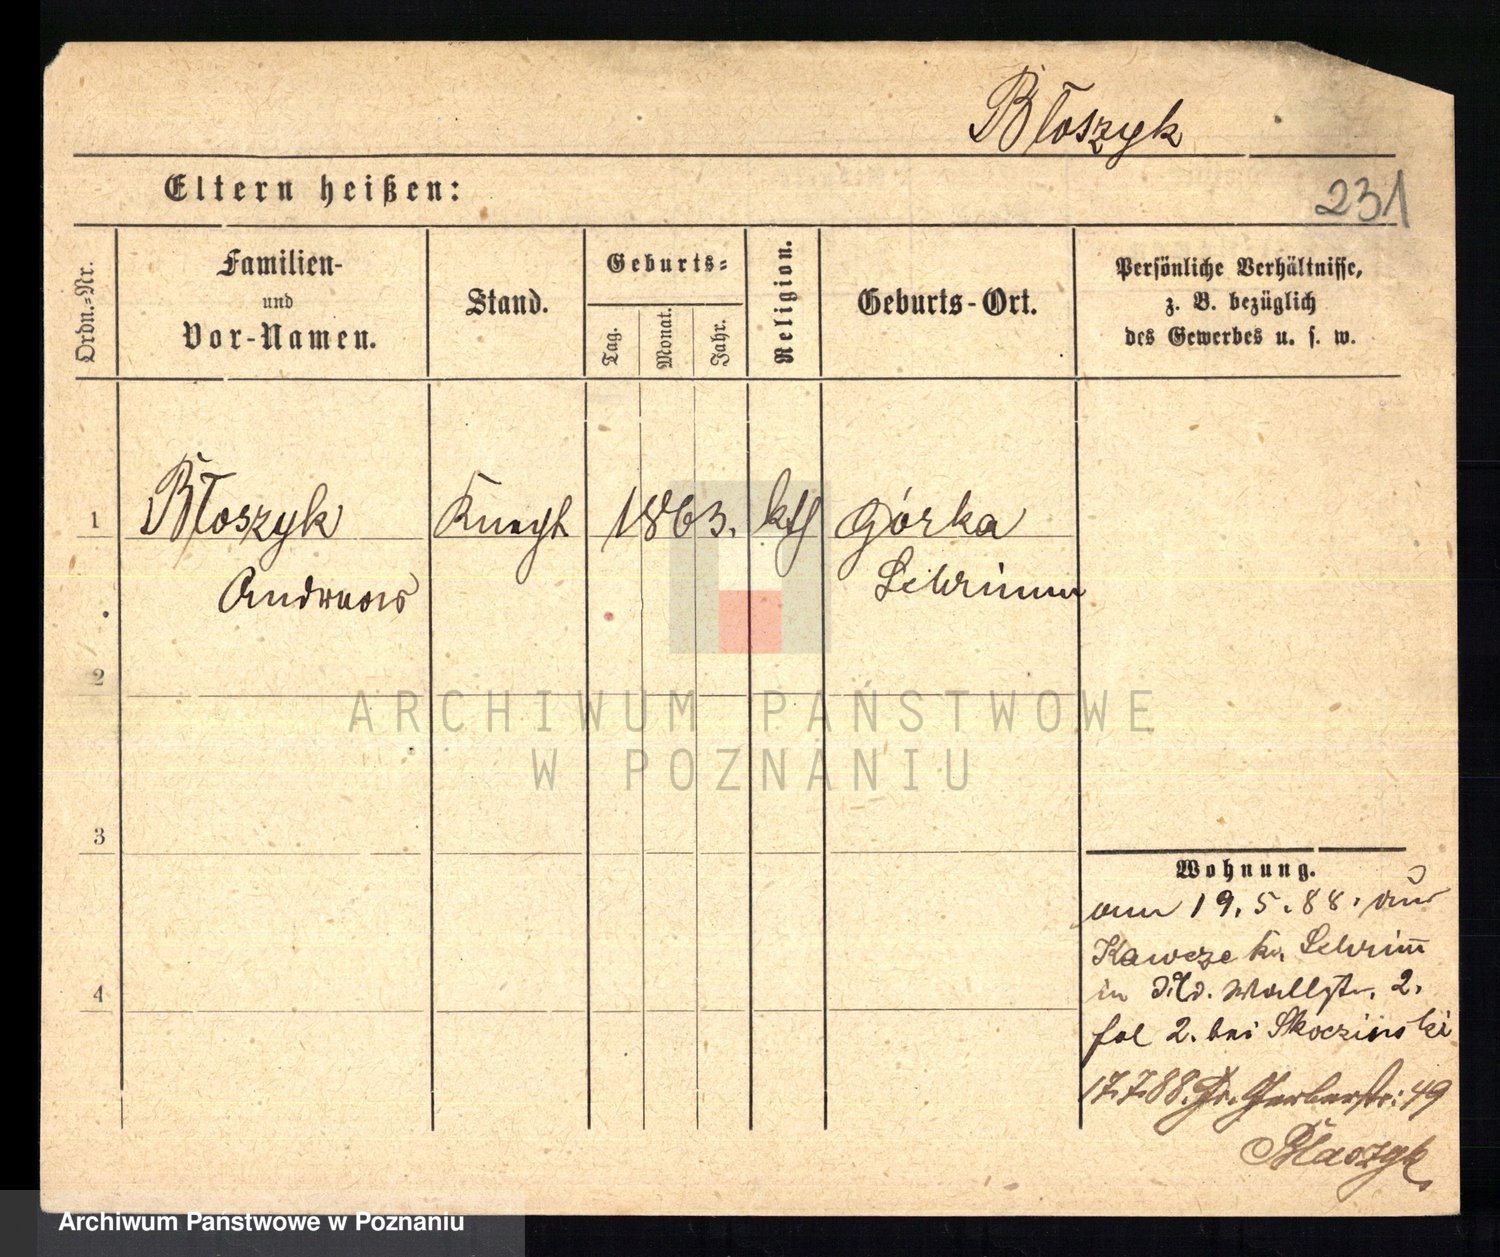 Błoszyk
Eltern heißen:
231
Ordn.-Nr.
Familien-
und
Vor-Namen.
Stand.
Geburts-
Tag.
Monat.
Jahr.
Religion.
Geburts-Ort.
Persönliche Verhältnisse,
z. B. bezüglich
des Gewerbes u. s. w.
1 Błoszyk Knecht 1863. kth Górka
Andreas Schrimm
2
ARCHIWUM PAŃSTWOWE
W POZNANIU
3
4
Wohnung.
am 19.5.88. aus
Kawcze Kr. Schrimm
in Wallstr. 2.
fol 2. bei Skoczinski
17.7.88. Gr. Gerberstr: 49
Blaszyk
Archiwum Państwowe w Poznaniu